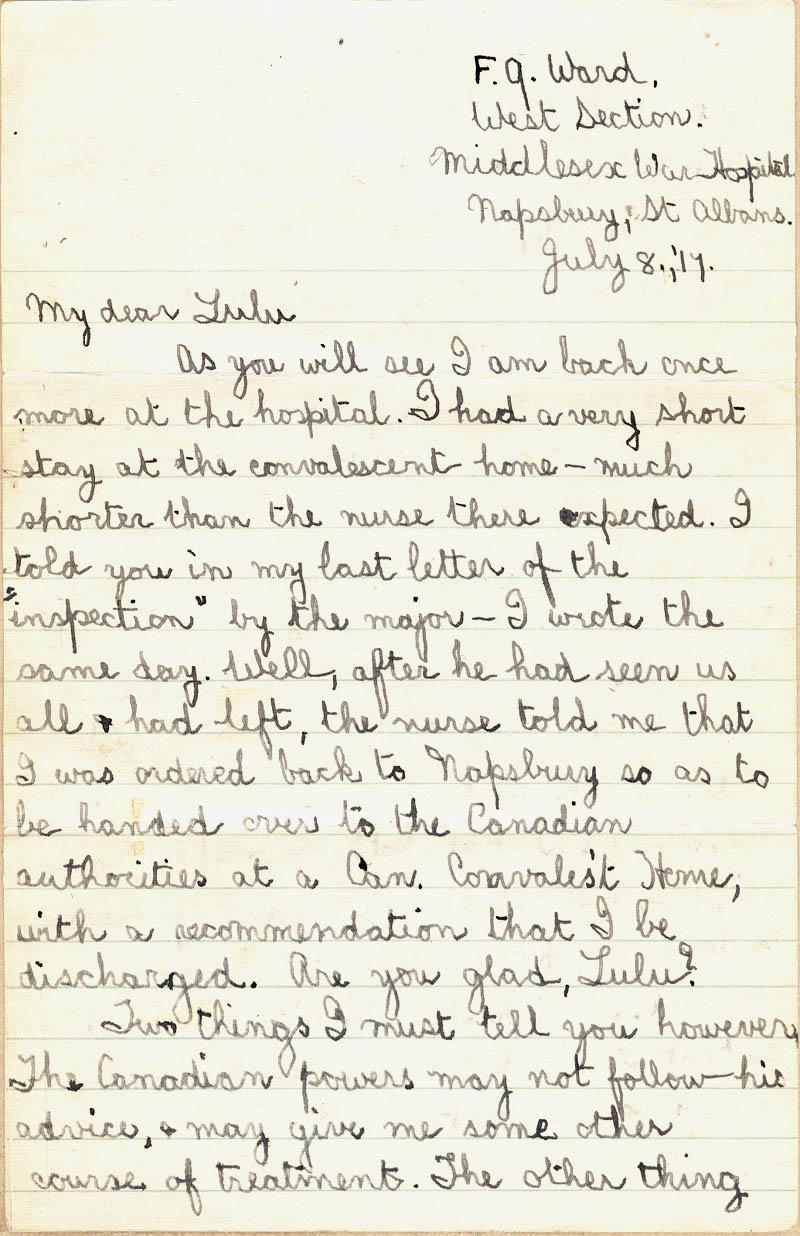 F.9. Ward,
West Section.
Middlesex War Hospital
Napsbury, St Albans.
July 8., '17.
My dear Lulu
As you will see I am back once
more at the hospital. I had a very short
stay at the convalescent home - much
shorter than the nurse there expected. I
told you in my last letter of the
"inspection" by the major - I wrote the
same day. Well, after he had seen us
all & had left, the nurse told me that
I was ordered back to Napsbury so as to
be handed over to the Canadian
authorities at a Can. Convales't Home,
with a recommendation that I be
discharged. Are you glad, Lulu?
Two things I must tell you however,
The Canadian powers may not follow his
advice, & may give me some other
course of treatment. The other thing